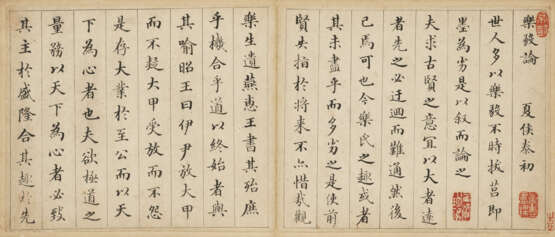 樂毅論 夏侯泰初
世人多以樂毅不時拔莒即
墨為劣是以叙而論之
夫求古賢之意宜以大者遠
者先之必迂迴而難通然後
已焉可也今樂氏之趣或者
其未盡乎而多劣之是使前
賢失指於將来不亦惜哉觀
樂生遺燕惠王書其殆庶
乎機合乎道以終始者與
其喻昭王曰伊尹放大甲
而不疑大甲受放而不怨
是存大業於至公而以天
下為心者也夫欲極道之
量務以天下為心者必致
其主於盛隆合其趣於先